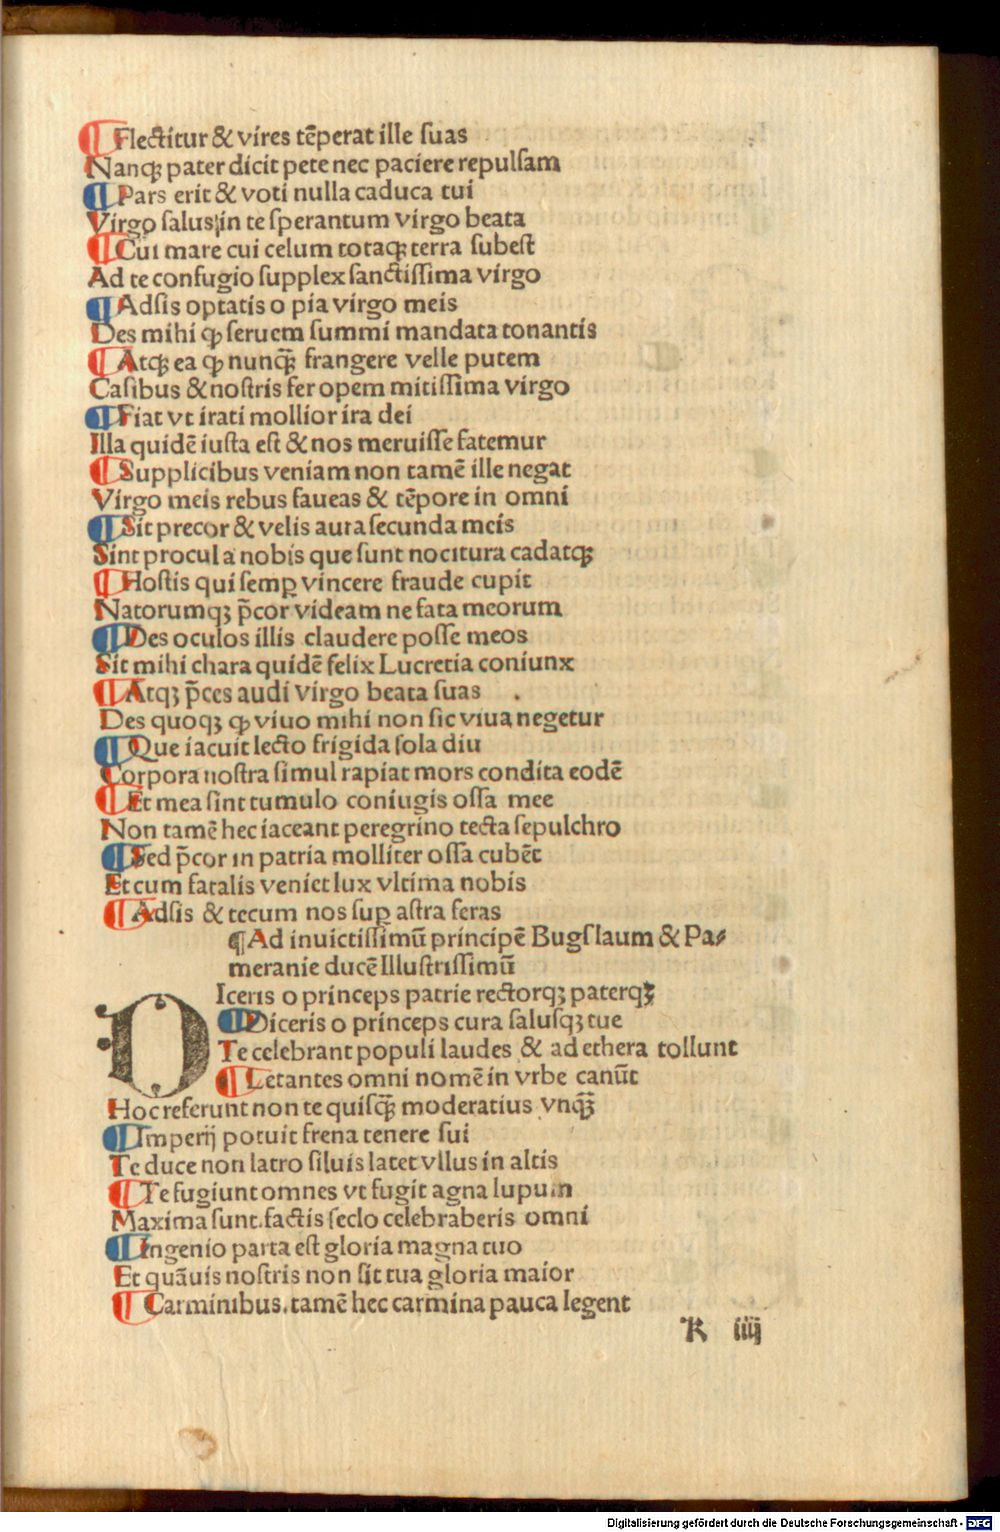 ¶ Flectitur & vires tēperat ille suas
Nanqꝫ pater dicit pete nec paciere repulsam
¶ Pars erit & voti nulla caduca tui
Virgo salus in te sperantum virgo beata
¶ Cui mare cui celum totaqꝫ terra subest
Ad te confugio supplex sanctissima virgo
¶ Adsis optatis o pia virgo meis
Des mihi ꝙ seruem summi mandata tonantis
¶ Atqꝫ ea ꝙ nunqꝫ̄ frangere velle putem
Casibus & nostris fer opem mitissima virgo
¶ Fiat vt irati mollior ira dei
Illa quidē iusta est & nos meruisse fatemur
¶ Supplicibus veniam non tamē ille negat
Virgo meis rebus faueas & tēpore in omni
¶ Sit precor & velis aura secunda meis
Sint procul a nobis que sunt nocitura cadatqꝫ
¶ Hostis qui semꝑ vincere fraude cupit
Natorumqꝫ p̄cor videam ne fata meorum
¶ Des oculos illis claudere posse meos
Sit mihi chara quidē felix Lucretia coniunx
¶ Atqꝫ p̄ces audi virgo beata suas
Des quoqꝫ ꝙ viuo mihi non sic viua negetur
¶ Que iacuit lecto frigida sola diu
Corpora nostra simul rapiat mors condita eodē
¶ Et mea sint tumulo coniugis ossa mee
Non tamē hec iaceant peregrino tecta sepulchro
¶ Sed p̄cor in patria molliter ossa cubēt
Et cum fatalis veniet lux vltima nobis
¶ Adsis & tecum nos suꝑ astra feras
¶ Ad inuictissimū principē Bugslaum & Pa⸗
meranie ducē Illustrissimū
DIceris o princeps patrie rectorqꝫ paterqꝫ
¶ Diceris o princeps cura salusqꝫ tue
Te celebrant populi laudes & ad ethera tollunt
¶ Letantes omni nomē in vrbe canūt
Hoc referunt non te quisqꝫ̄ moderatius vnqꝫ̄
¶ Imperij potuit frena tenere sui
Te duce non latro siluis latet vllus in altis
¶ Te fugiunt omnes vt fugit agna lupum
Maxima sunt. factis seclo celebraberis omni
¶ Ingenio parta est gloria magna tuo
Et quāuis nostris non sit tua gloria maior
¶ Carminibus. tamē hec carmina pauca legent
K iiij
Digitalisierung gefördert durch die Deutsche Forschungsgemeinschaft - DFG